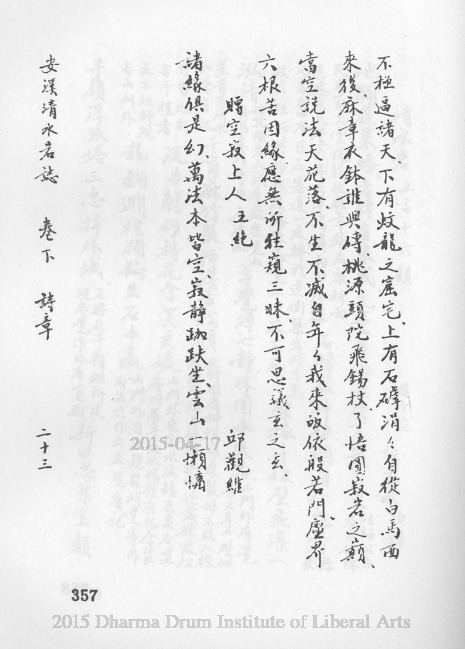 不極逼諸天、下有蛟龍之窟宅、上有石罅涓々自從白馬西
來後麻章衣鉢誰與傳、桃源頭院飛錫杖、了悟圓寂岩之巔、
當空説法天花落、不生不滅自年々我來皈依般若門、塵界
六根苦因緣、應無所住窺三昧、不可思議玄之玄、
贈空寂上人 五絶 邱觀維
諸緣俱是幻、萬法本皆空、寂靜跏趺坐、雲山一懶慵
安溪清水岩誌 卷下 詩章 二十三
357
2015-04-17
2015 Dharma Drum Institute of Liberal Arts